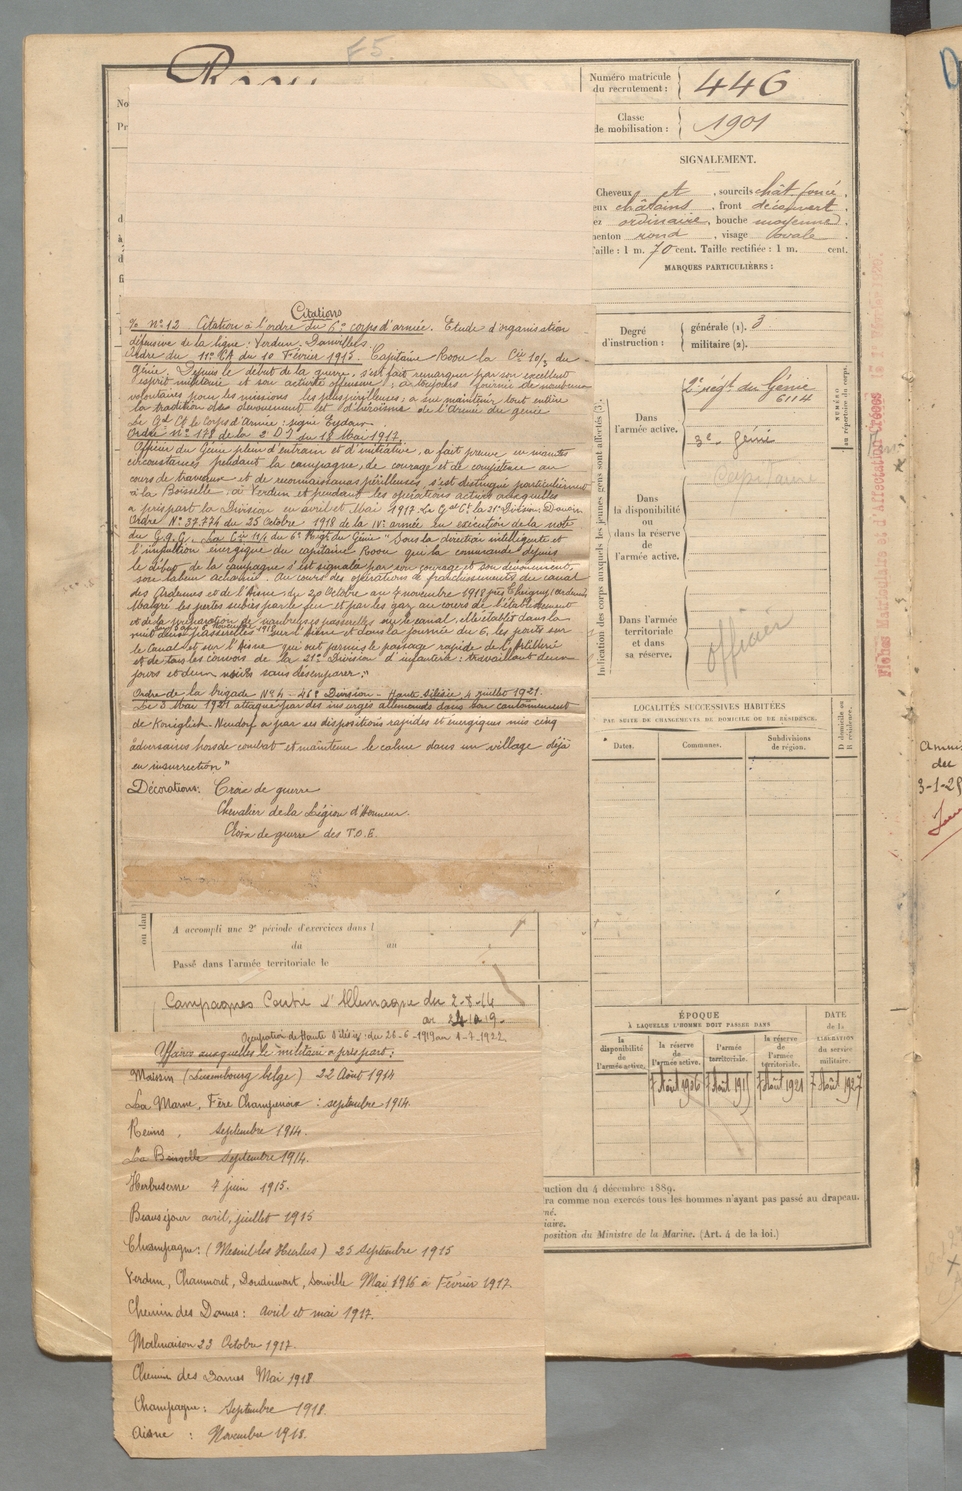 F5
Roou
No
Pr
Numéro matricule
du recrutement :
446
Classe
de mobilisation :
1901
SIGNALEMENT.
Cheveux et , sourcils chât. foncé ,
eux châtains , front découvert ,
ez ordinaire , bouche moyenne ,
menton rond , visage ovale .
Taille : 1 m. 70 cent. Taille rectifiée : 1 m. cent.
MARQUES PARTICULIÈRES :
Degré
d'instruction :
générale (1). 3
militaire (2).
Indication des corps auxquels les jeunes gens sont affectés (3).
NUMÉRO
au répertoire du corps.
Dans
l'armée active.
2e régt. du Génie
6114
3e Génie
Dans
la disponibilité
ou
dans la réserve
de
l'armée active.
Capitaine
Dans l'armée
territoriale
et dans
sa réserve.
officier
LOCALITÉS SUCCESSIVES HABITÉES
PAR SUITE DE CHANGEMENTS DE DOMICILE OU DE RÉSIDENCE.
Dates.
Communes.
Subdivisions
de région.
D domicile ou
R résidence.
Citations
No 12 Citation à l'ordre du 6e corps d'armée. Etude d'organisation
défensive de la ligne : Verdun. Danvillers.
Ordre du 11e CA du 10 Février 1915. Capitaine Roou la Cie 10/3 du
Génie. Depuis le début de la guerre, s'est fait remarquer par son excellent
esprit militaire et son activité offensive ; a toujours fourni de nombreux
volontaires pour les missions les plus périlleuses ; a su maintenir tout entière
la tradition de dévouement et d'héroïsme de l'Armée du génie
Le Gal Ct le Corps d'Armée : signé Eydoux
Ordre no 178 de la 2e D I du 18 Mai 1917.
Officier du Génie plein d'entrain et d'initiative, a fait preuve en maintes
circonstances pendant la campagne, de courage et de compétence au
cours de travaux et de reconnaissances périlleuses, s'est distingué particulièrement
à la Boisselle, à Verdun et pendant les opérations actives auxquelles
a pris part la Division en avril et Mai 1917. Le Gal Ct la 21e Division : Dauvin
Ordre No 37.774 du 25 Octobre 1918 de la IVe armée. En exécution de la note
du G.Q.G. La Cie 11/4 du 6e Régt du Génie "Sous la direction intelligente et
l'impulsion énergique du capitaine Roou qui la commande depuis
le début de la campagne s'est signalée par son courage et son dévouement,
son labeur acharné. Au cours des opérations de franchissements du canal
des Ardennes et de l'Aisne, du 20 Octobre au 7 novembre 1918 près Chuigny (ardennes)
Malgré les pertes subies par le feu et par les gaz au cours de l'établissement
et de la préparation de nombreuses passerelles sur le canal, elle établit dans la
nuit deux passerelles sur l'Aisne et dans la journée du 6, les ponts sur
le Canal et sur l'Aisne qui ont permis le passage rapide de l'Artillerie
et de tous les convois de la 21e Division d'infanterie : travaillant deux
jours et deux nuits sans désemparer."
Ordre de la brigade No 4 - 46e Division - Haute Silésie, 4 juillet 1921.
Le 3 Mai 1921 attaqué par des insurgés allemands dans son cantonnement
de Koniglich-Neudorf a par ses dispositions rapides et énergiques mis cinq
adversaires hors de combat et maintenu le calme dans un village déjà
en insurrection"
Décorations: Croix de guerre
Chevalier de la Légion d'Honneur.
Croix de guerre des T.O.E.
ou dan
A accompli une 2e période d'exercices dans l
du au
Passé dans l'armée territoriale le
Campagnes Contre l'Allemagne du 2-8-14
au 24 10 19.
Occupation de Haute Silésie : du 26-6-1919 au 1-7-1922.
Affaires auxquelles le militaire a pris part :
Maissin (Luxembourg belge) 22 Août 1914
La Marne, Fère Champenoise : septembre 1914.
Reims , septembre 1914.
La Boisselle septembre 1914.
Herbuterne 7 juin 1915.
Beauséjour avril, juillet 1915
Champagne : (Mesnil les Hurlus) 25 Septembre 1915
Verdun, Chaumont, Douaumont, Souville Mai 1916 à Février 1917.
Chemin des Dames : avril et mai 1917.
Malmaison 23 Octobre 1917.
Chemin des Dames Mai 1918
Champagne : Septembre 1918.
Aisne : Novembre 1918.
ÉPOQUE
À LAQUELLE L'HOMME DOIT PASSER DANS
la
disponibilité
de
l'armée active.
la réserve
de
l'armée active.
l'armée
territoriale.
la réserve
de
l'armée
territoriale.
DATE
de la
LIBÉRATION
du service
militaire.
7 Août 1906
7 Août 1911
7 Août 1921
7 Août 1927
uction du 4 décembre 1889.
ra comme non exercés tous les hommes n'ayant pas passé au drapeau.
né.
iaire.
position du Ministre de la Marine. (Art. 4 de la loi.)
Fiches Matriculaire et d'Affectation créées le
du
3-1-28